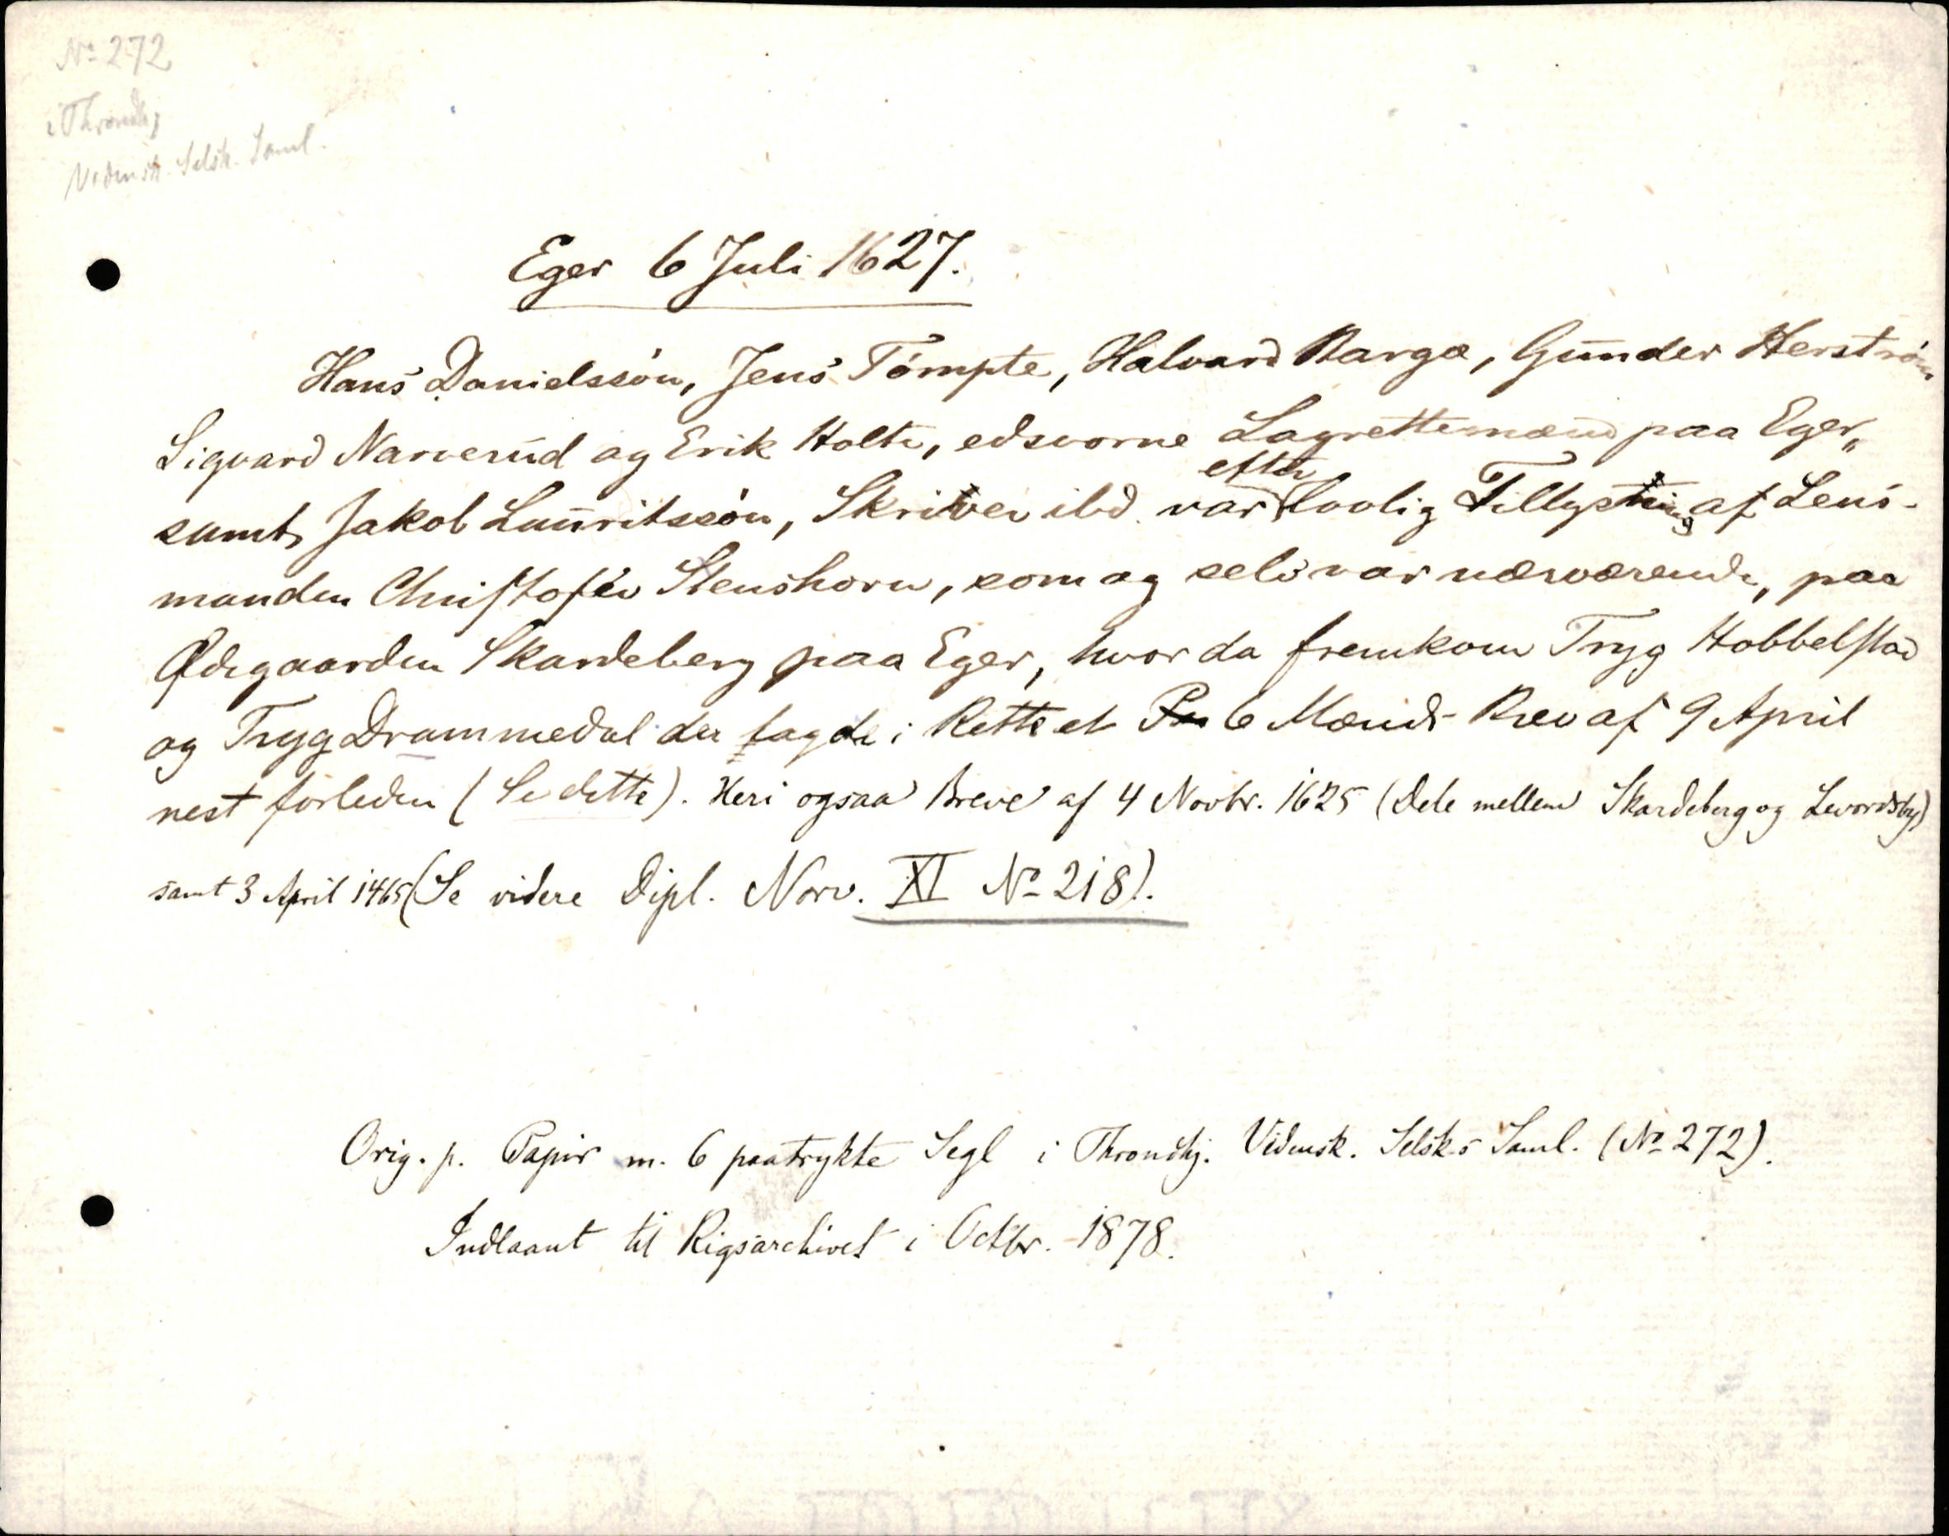 No 272
i Throndhj
Vidensk. Selsk. Saml.
Eger 6 Juli 1627.
Hans Danielssön, Jens Tömpte, Halvard Bargæ, Gunder Herström
Sigvard Narverud og Erik Holte, edsvorne Lagrettemænd paa Eger,
samt Jakob Lauritssön, Skriver ibd. var efter lovlig Tillysning af Lens-
manden Christofer Stenshorn, som og selv var nærværende, paa
Ødegaarden Skardeberg paa Eger, hvor da fremkom Tryg Hobbelstad
og Tryg Drammedal der lagde i Rette et 6 Mænds Brev af 9 April
nest forleden (Se dette). Heri ogsaa Breve af 4 Novbr. 1625 (Dele mellem Skardeberg og Levordsby)
samt 3 April 1465 (Se videre Dipl. Norv. XI No 218).
Orig. p. Papir m. 6 paatrykte Segl i Throndhj. Vidensk. Selsk.s Saml. (No 272).
Indlaant til Rigsarchivet i Octbr. 1878.